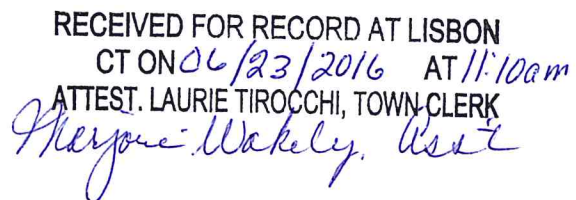 RECEIVED FOR RECORD AT LISBON
CT ON 06/23/2016 AT 11:10am
ATTEST. LAURIE TIROCCHI, TOWN CLERK
Marjorie Wakely, Asst